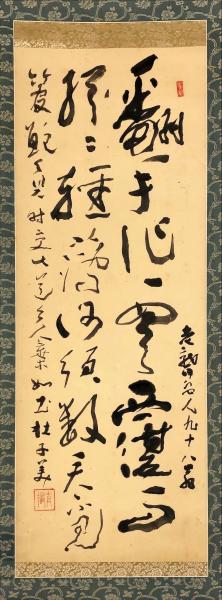 翻手作雲覆手雨
紛々輕薄何須數君不見
管鮑貧時交此道今人棄如土杜子美
人九十八